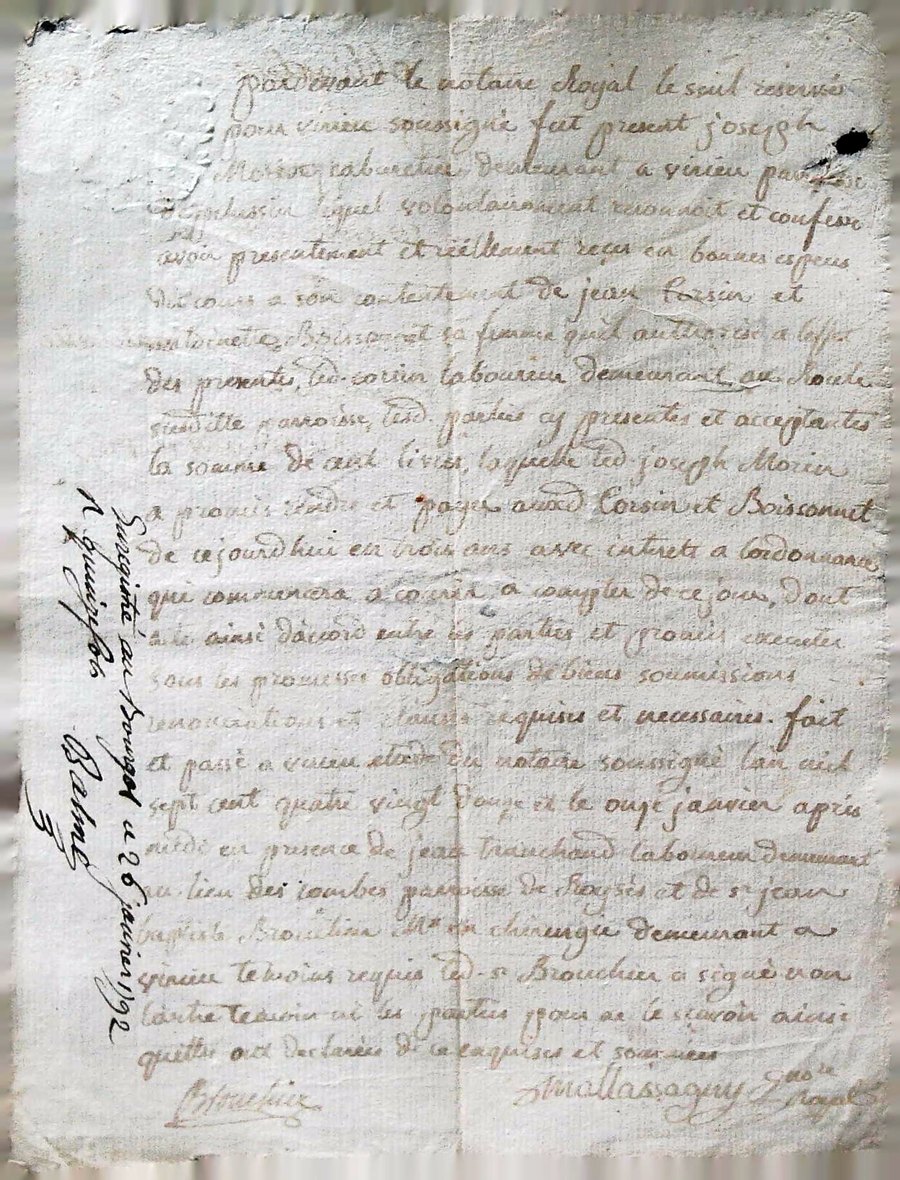 pardevant le notaire Royal le seul reservé
pour virieu soussigné fut present joseph
Morin cabaretier demeurant a virieu paroisse
de pelussin lequel volontairement reconnoit et confesse
avoir presentement et réellement reçu en bonnes especes
du cours a son contentement de jean Corsin et
antoinette Boissonnet sa femme qu'il authorise a l'effet
des presentes, led. corsin laboureur demeurant au
susditte parroisse, lesd. parties cy presentes et acceptantes
la somme de cent livres, laquelle led. joseph Morin
a promis rendre et payer auxd Corsin et Boissonnet
de cejourdhui en trois ans avec interets a lordonnance
qui commencera a courir a compter de ce jour, dont
a été ainsi daccord entre les parties et promis executer
sous les promesses obligations de biens soumissions
renonciations et clauses requises et necessaires. fait
et passé a virieu etude du notaire soussigné lan mil
sept cent quatre vingt douze et le onze janvier après
midi en presence de jean tranchand laboureur demeurant
au lieu des combes parroisse de Roysés et de sr jean
baptiste Brouchier Me en chirurgie demeurant a
virieu temoins requis led. sr Brouchier a signé non
lautre temoin ni les parties pour ne le scavoir ainsi
quelles ont declarées de ce enquises et sommées
Brouchier
Mallassagny nore
Royal
Enregistré au Bourget le 26 janvier 1792
R quinze sols
Balme